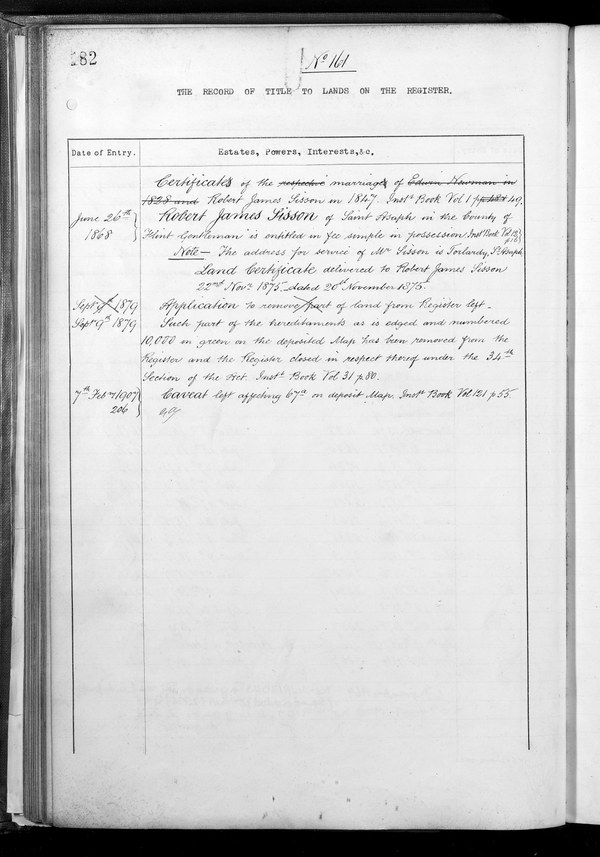 182
No 161
THE RECORD OF TITLE TO LANDS ON THE REGISTER.
Date of Entry.
Estates, Powers, Interests,&c.
Certificates of the respective marriages of Edwin Newman in
1828 and Robert James Sisson in 1847. Instt Book Vol 1 p 49.
June 26th 1868
Robert James Sisson of Saint Asaph in the County of
Flint Gentleman is entitled in fee simple in possession Instt Book Vol 12 p 16
Note— The address for service of Mr Sisson is Torlardy, St Asaph
Land Certificate delivered to Robert James Sisson
22nd Novr 1875. dated 20th November 1875.
Septr 9th 1879
Application to remove part of land from Register left—
Septr 9th 1879
Such part of the hereditaments as is edged and numbered
10,000 in green on the deposited Map has been removed from the
Register and the Register closed in respect thereof under the 34th
Section of the Act. Instt Book Vol 31 p 80.
7th Feby 1907
206
Caveat left affecting 67a on deposit Map. Instt Book Vol 121 p 55